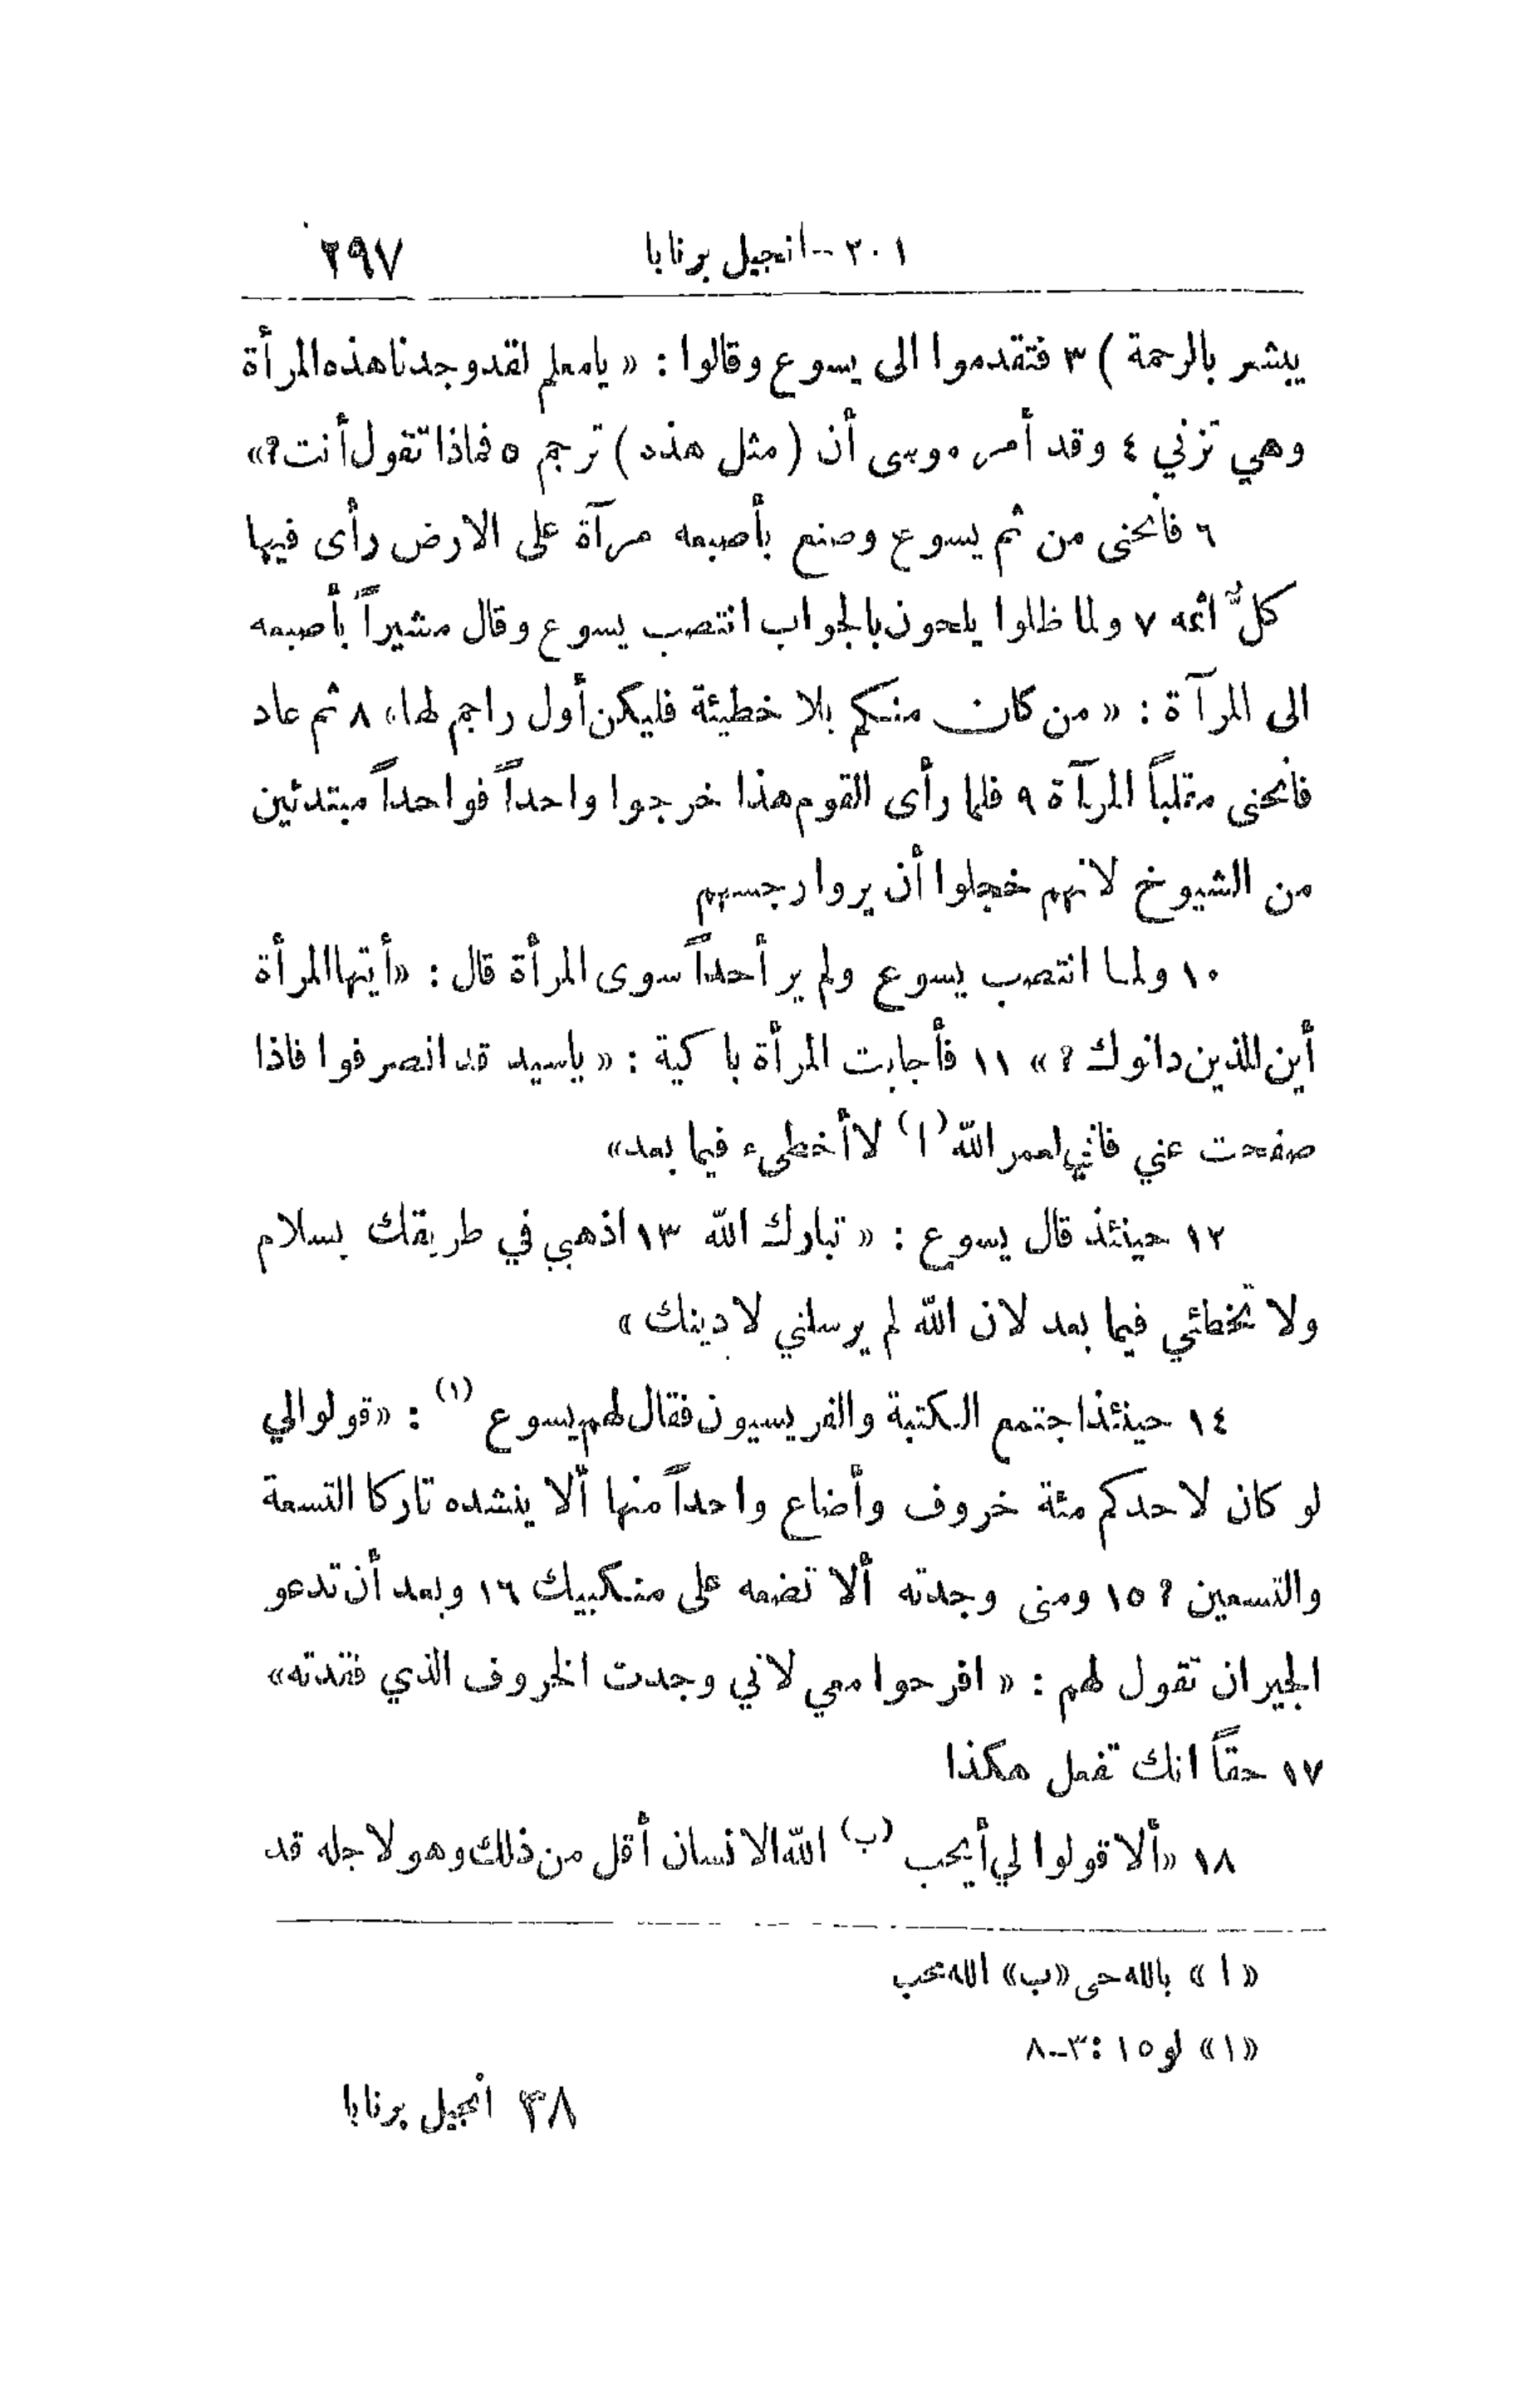 ٢٠١ -- انجيل برنابا ٢٩٧
يبشر بالرحمة ) ٣ فتقدموا الى يسوع وقالوا : « يامعلم لقد وجدنا هذه المرأة
وهي تزني ٤ وقد أمر موسى أن ( مثل هذه ) ترجم ٥ فماذا تقول أنت ؟»
٦ فانحنى من ثم يسوع وصنع بأصبعه مرآة على الارض رأى فيها
كلٌّ اثمه ٧ ولما ظلوا يلحون بالجواب انتصب يسوع وقال مشيراً بأصبعه
الى المرآة : « من كان منكم بلا خطيئة فليكن أول راجم لها» ٨ ثم عاد
فانحنى مقلباً المرآة ٩ فلما رأى القوم هذا خرجوا واحداً فواحداً مبتدئين
من الشيوخ لانهم خجلوا أن يروا رجسهم
١٠ ولما انتصب يسوع ولم ير أحداً سوى المرأة قال : «أيتها المرأة
أين الذين دانوك ؟ » ١١ فأجابت المرأة باكية : « ياسيد قد انصرفوا فاذا
صفحت عني فاني لعمر الله (ا) لا أخطىء فيما بعد»
١٢ حينئذ قال يسوع : « تبارك الله ١٣ اذهبي في طريقك بسلام
ولا تخطئي فيما بعد لان الله لم يرسلني لادينك »
١٤ حينئذ اجتمع الكتبة والفريسيون فقال لهم يسوع (١) : «قولوا لي
لو كان لاحدكم مئة خروف وأضاع واحداً منها ألا ينشده تاركا التسعة
والتسعين ؟ ١٥ ومتى وجدته ألا تضعه على منكبيك ١٦ وبعد أن تدعو
الجيران تقول لهم : « افرحوا معي لاني وجدت الخروف الذي فقدته»
١٧ حقاً انك تفعل هكذا
١٨ «ألا قولوا لي أيحب (ب) الله الانسان أقل من ذلك وهو لاجله قد
« ا » بالله حى «ب» الله محب
«١» لو ١٥ : ٣--٨
٣٨ انجيل برنابا